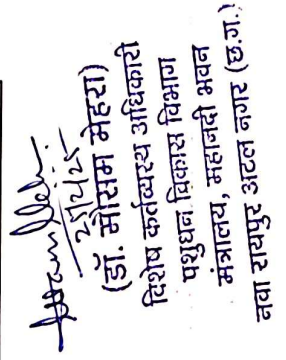 (डॉ. मौसम मेहरा)
विशेष कर्तव्यस्थ अधिकारी
पशुधन विकास विभाग
मंत्रालय, महानदी भवन
नवा रायपुर अटल नगर (छ.ग.)